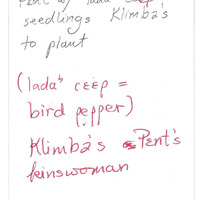 Pent w/ lada' cɛɛp
seedlings Klimba's
to plant
(lada' cɛɛp =
bird pepper)
Klimba's Pent's
kinswoman